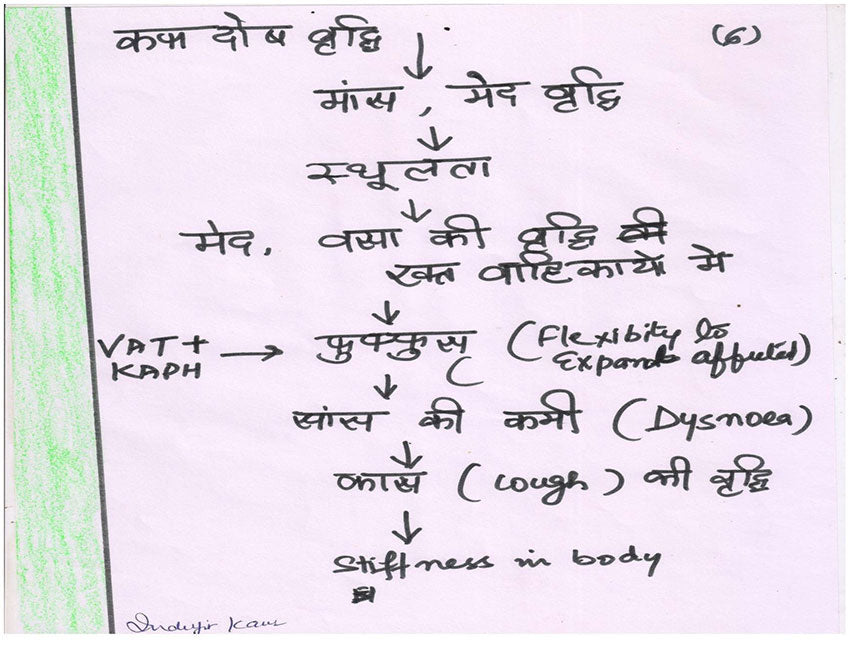 कफ दोष वृद्धि (6)
मांस, मेद वृद्धि
स्थूलता
मेद, वसा की वृद्धि की
रक्त वाहिकायो मे
VAT + KAPH → फुफ्फुस (Flexibity to Expand affected)
सांस की कमी (Dysnoea)
कास (cough) की वृद्धि
Stiffness in body
Kaur